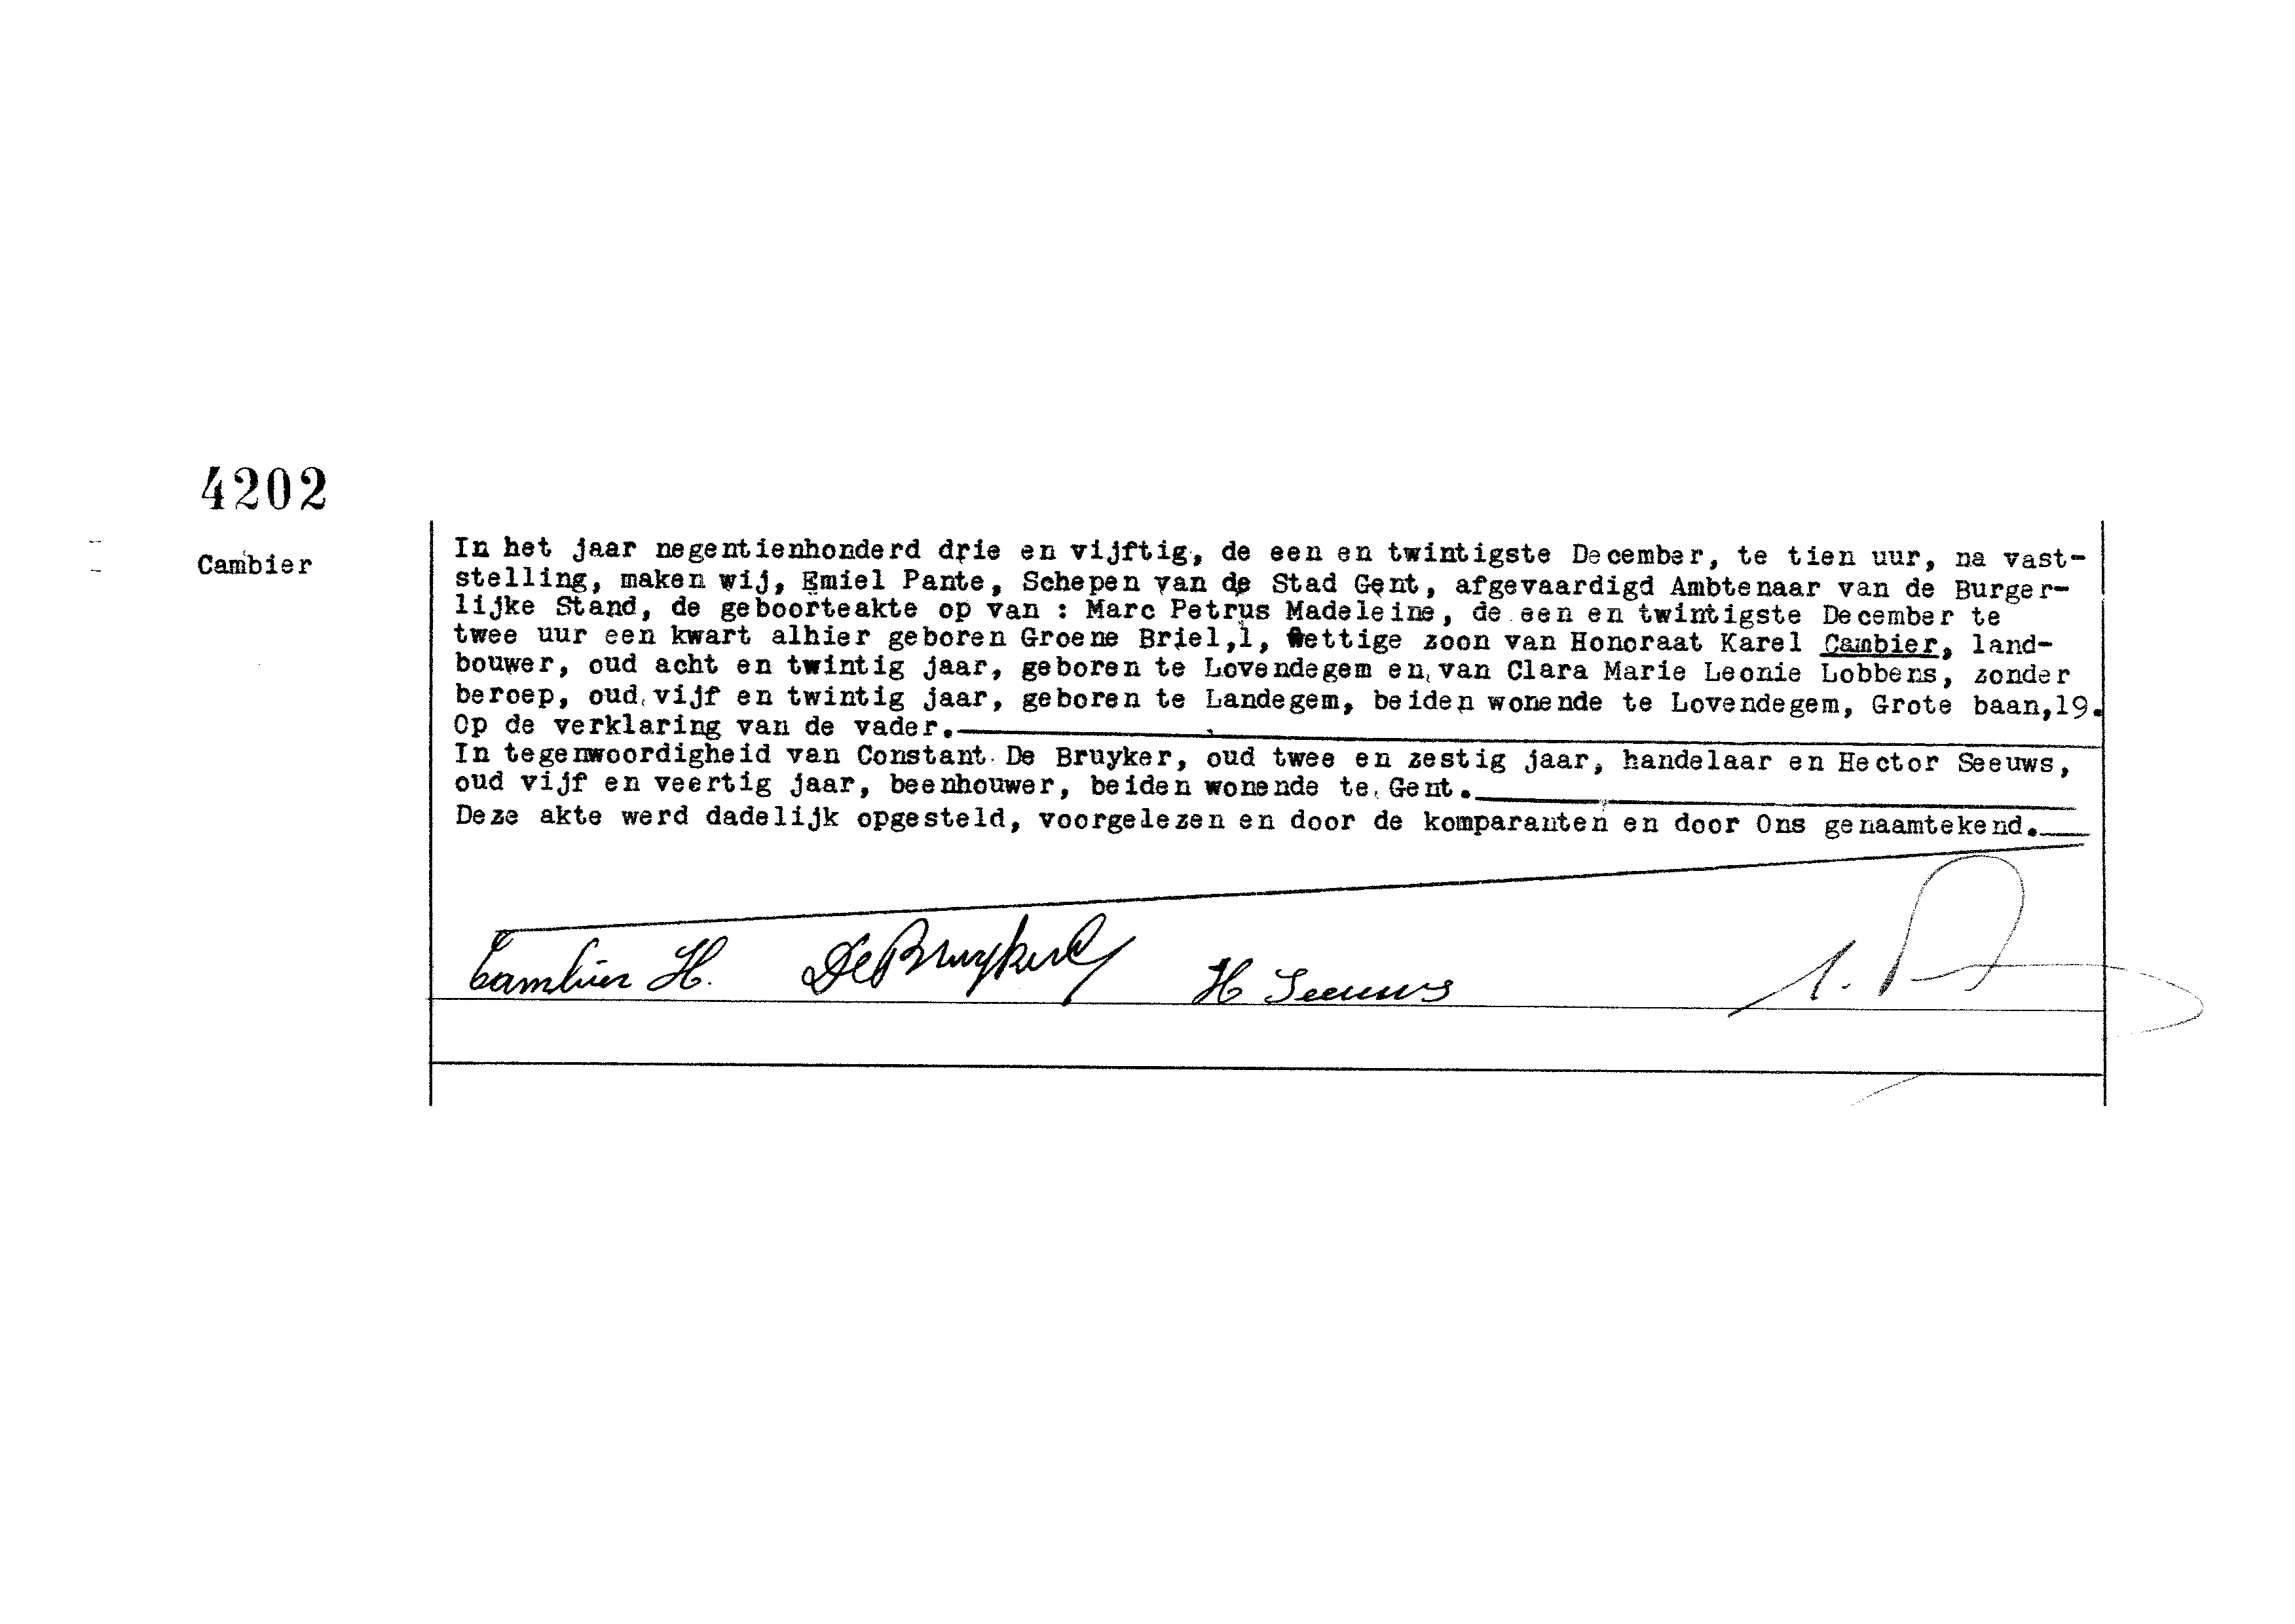 4202
Cambier
In het jaar negentienhonderd drie en vijftig, de een en twintigste December, te tien uur, na vast-
stelling, maken wij, Emiel Pante, Schepen van de Stad Gent, afgevaardigd Ambtenaar van de Burger-
lijke Stand, de geboorteakte op van : Marc Petrus Madeleine, de een en twintigste December te
twee uur een kwart alhier geboren Groene Briel,1, Wettige zoon van Honoraat Karel Cambier, land-
bouwer, oud acht en twintig jaar, geboren te Lovendegem en van Clara Marie Leonie Lobbens, zonder
beroep, oud vijf en twintig jaar, geboren te Landegem, beiden wonende te Lovendegem, Grote baan,19.
Op de verklaring van de vader.
In tegenwoordigheid van Constant De Bruyker, oud twee en zestig jaar, handelaar en Hector Seeuws,
oud vijf en veertig jaar, beenhouwer, beiden wonende te Gent.
Deze akte werd dadelijk opgesteld, voorgelezen en door de komparanten en door Ons genaamtekend.
Cambier H. De Bruyker H Seeuws